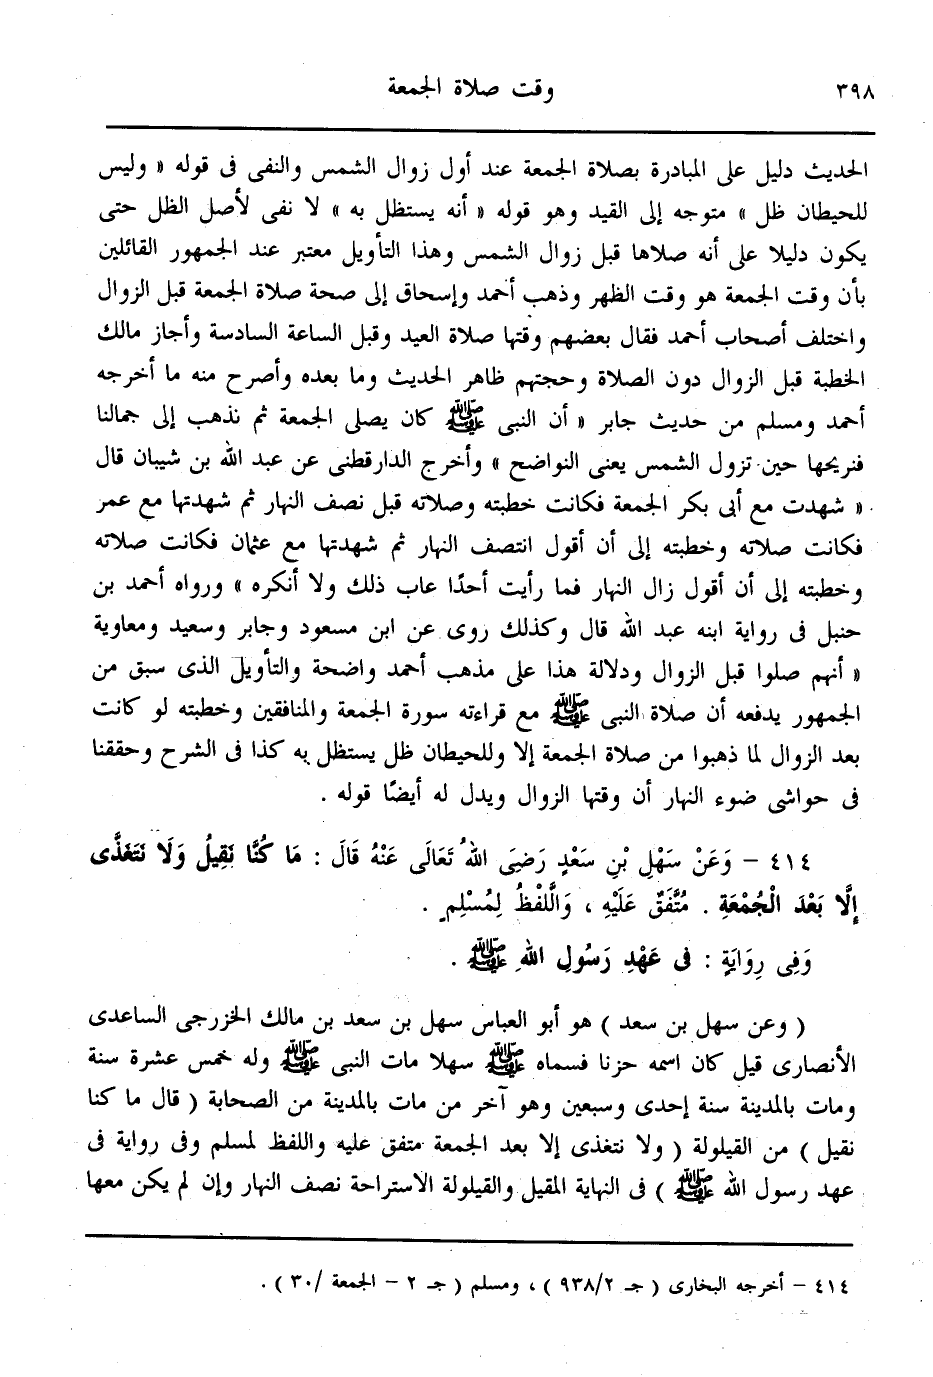 ٣٩٨
وقت صلاة الجمعة
الحديث دليل على المبادرة بصلاة الجمعة عند أول زوال الشمس والنفى فى قوله « وليس
للحيطان ظل » متوجه إلى القيد وهو قوله « أنه يستظل به » لا نفى لأصل الظل حتى
يكون دليلا على أنه صلاها قبل زوال الشمس وهذا التأويل معتبر عند الجمهور القائلين
بأن وقت الجمعة هو وقت الظهر وذهب أحمد وإسحاق إلى صحة صلاة الجمعة قبل الزوال
واختلف أصحاب أحمد فقال بعضهم وقتها صلاة العيد وقبل الساعة السادسة وأجاز مالك
الخطبة قبل الزوال دون الصلاة وحجتهم ظاهر الحديث وما بعده وأصرح منه ما أخرجه
أحمد ومسلم من حديث جابر « أن النبى ﷺ كان يصلى الجمعة ثم نذهب إلى جمالنا
فنريحها حين تزول الشمس يعنى النواضح » وأخرج الدارقطنى عن عبد الله بن شيبان قال
« شهدت مع أبى بكر الجمعة فكانت خطبته وصلاته قبل نصف النهار ثم شهدتها مع عمر
فكانت صلاته وخطبته إلى أن أقول انتصف النهار ثم شهدتها مع عثمان فكانت صلاته
وخطبته إلى أن أقول زال النهار فما رأيت أحدًا عاب ذلك ولا أنكره » ورواه أحمد بن
حنبل فى رواية ابنه عبد الله قال وكذلك روى عن ابن مسعود وجابر وسعيد ومعاوية
« أنهم صلوا قبل الزوال ودلالة هذا على مذهب أحمد واضحة والتأويل الذى سبق من
الجمهور يدفعه أن صلاة النبى ﷺ مع قراءته سورة الجمعة والمنافقين وخطبته لو كانت
بعد الزوال لما ذهبوا من صلاة الجمعة إلا وللحيطان ظل يستظل به كذا فى الشرح وحققنا
فى حواشى ضوء النهار أن وقتها الزوال ويدل له أيضًا قوله .
٤١٤ – وَعَنْ سَهْلِ بْنِ سَعْدٍ رَضِىَ اللهُ تَعَالَى عَنْهُ قَالَ : مَا كُنَّا نَقِيلُ وَلَا نَتَغَذَّى
إِلَّا بَعْدَ الْجُمْعَةِ . مُتَّفَقٌ عَلَيْهِ ، وَالَّلفْظُ لِمُسْلِمٍ .
وَفِى رِوَايَةٍ : فى عَهْدِ رَسُولِ اللهِ ﷺ .
( وعن سهل بن سعد ) هو أبو العباس سهل بن سعد بن مالك الخزرجى الساعدى
الأنصارى قيل كان اسمه حزنا فسماه ﷺ سهلا مات النبى ﷺ وله خمس عشرة سنة
ومات بالمدينة سنة إحدى وسبعين وهو آخر من مات بالمدينة من الصحابة ( قال ما كنا
نقيل ) من القيلولة ( ولا نتغذى إلا بعد الجمعة متفق عليه واللفظ لمسلم وفى رواية فى
عهد رسول الله ﷺ ) فى النهاية المقيل والقيلولة الاستراحة نصف النهار وإن لم يكن معها
٤١٤ – أخرجه البخارى ( جـ ٩٣٨/٢ ) ، ومسلم ( جـ ٢ – الجمعة /٣٠ ) .